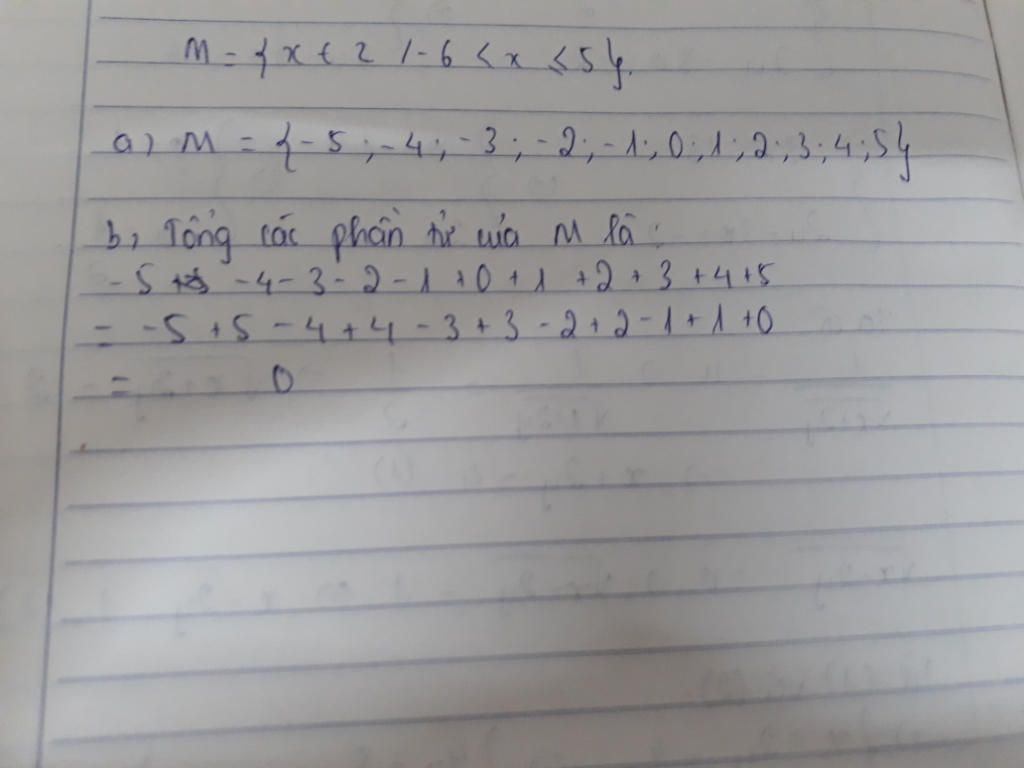 M = { x ∈ Z / -6 < x ≤ 5 }.
a) M = { -5 ; -4 ; -3 ; -2 ; -1 ; 0 ; 1 ; 2 ; 3 ; 4 ; 5 }
b, Tổng các phần tử của M là :
-5 -4 - 3 - 2 - 1 + 0 + 1 + 2 + 3 + 4 + 5
= -5 + 5 - 4 + 4 - 3 + 3 - 2 + 2 - 1 + 1 + 0
= 0